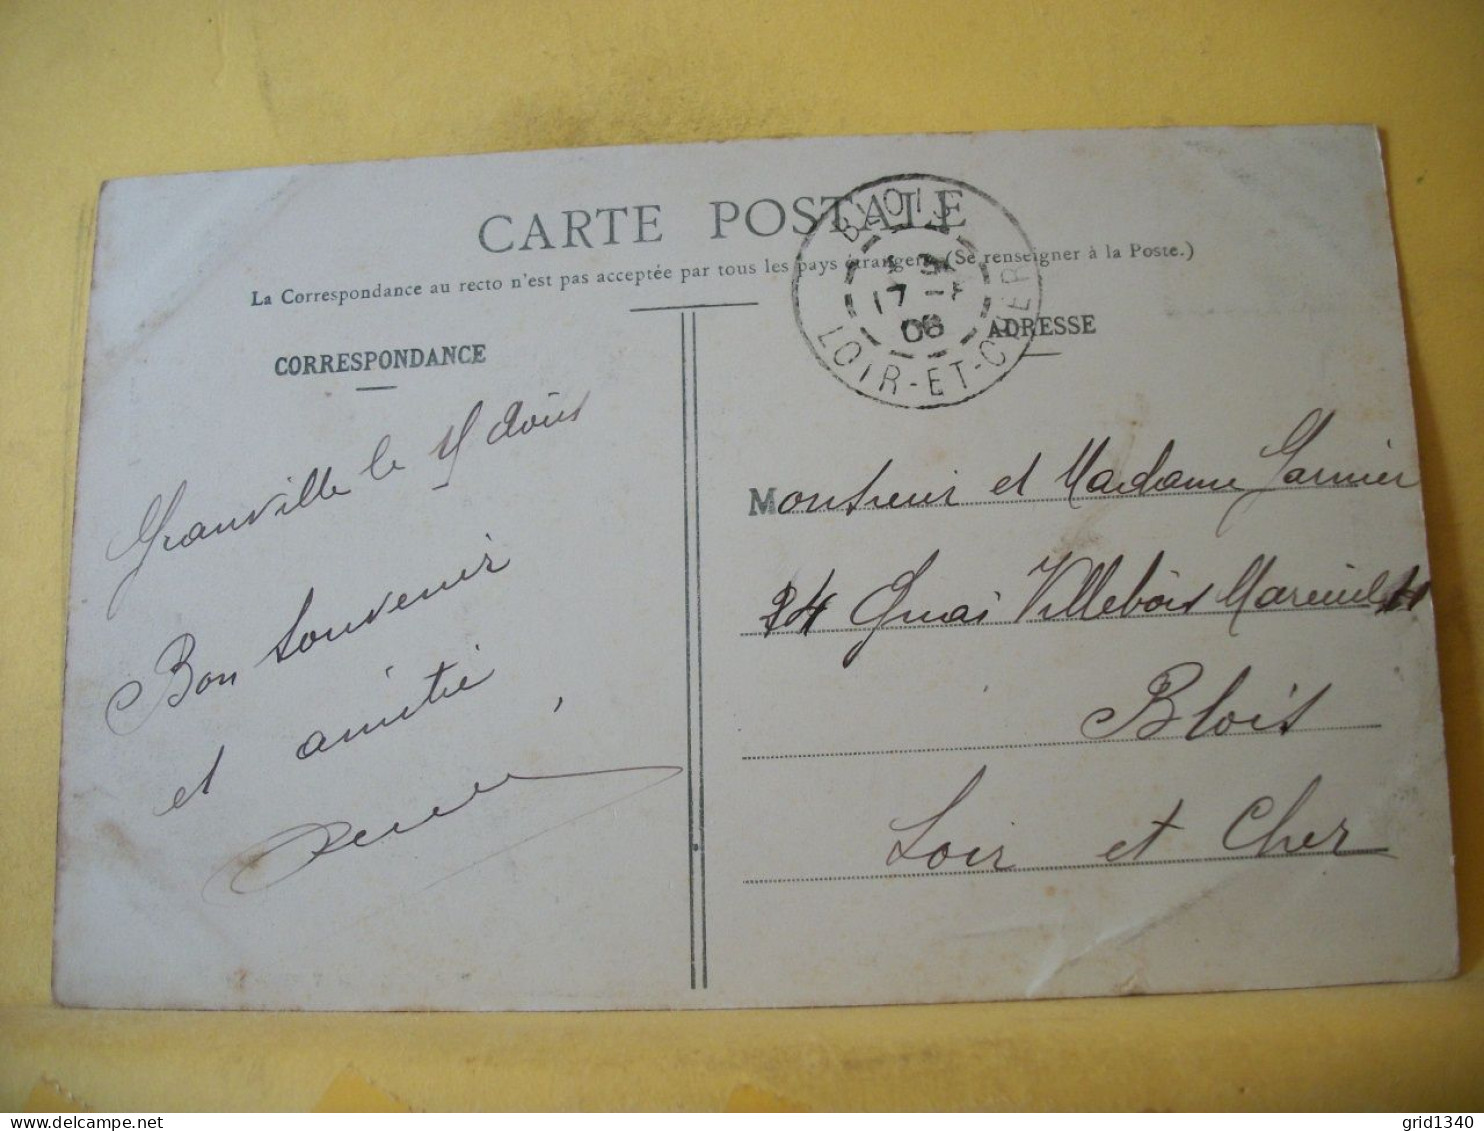 CARTE POSTALE
La Correspondance au recto n'est pas acceptée par tous les pays étrangers (Se renseigner à la Poste.)
CORRESPONDANCE
Granville le Août
Bon Souvenir
et amitié
ADRESSE
Monsieur et Madame Garnier
34 Quai Villebois Mareuil
Blois
Loir et Cher
BLOIS
17 -
06
LOIR-ET-CHER
delcampe.net
grid1340